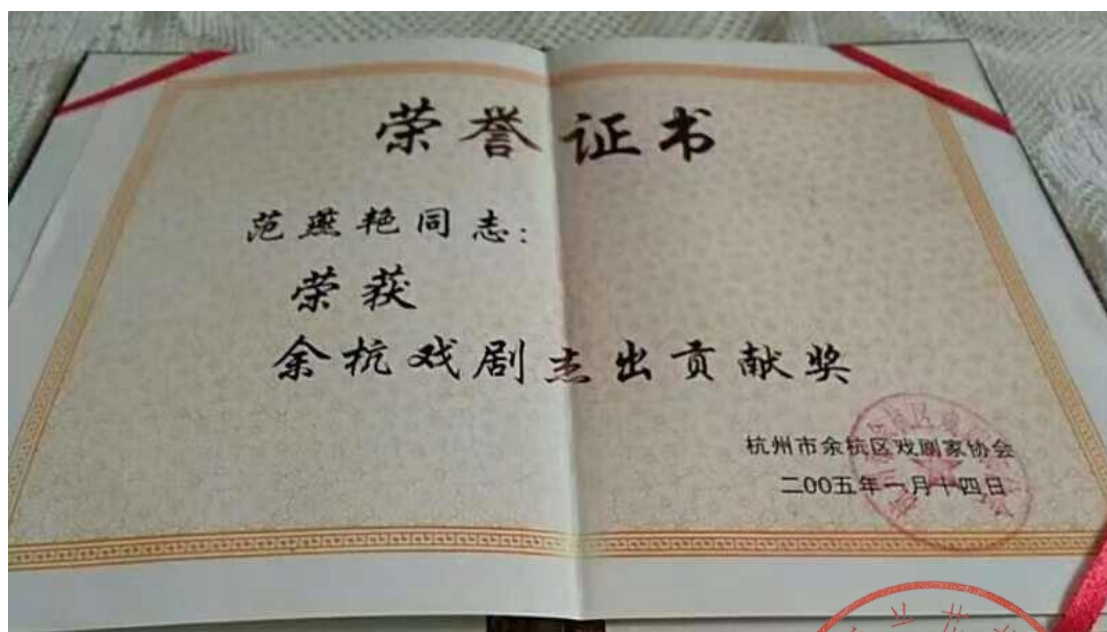 荣誉证书
范燕艳同志:
荣获
余杭戏剧杰出贡献奖
杭州市余杭区戏剧家协会
二00五年一月十四日